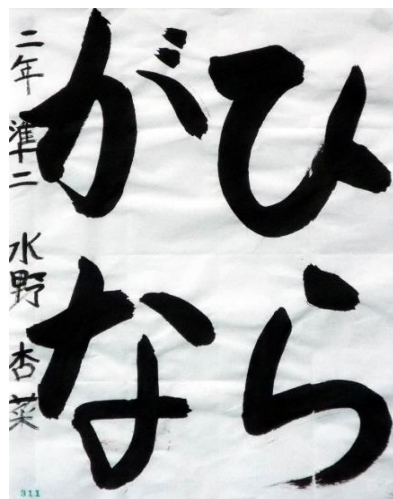 ひら
がな
二年 準二 水野 杏菜
311